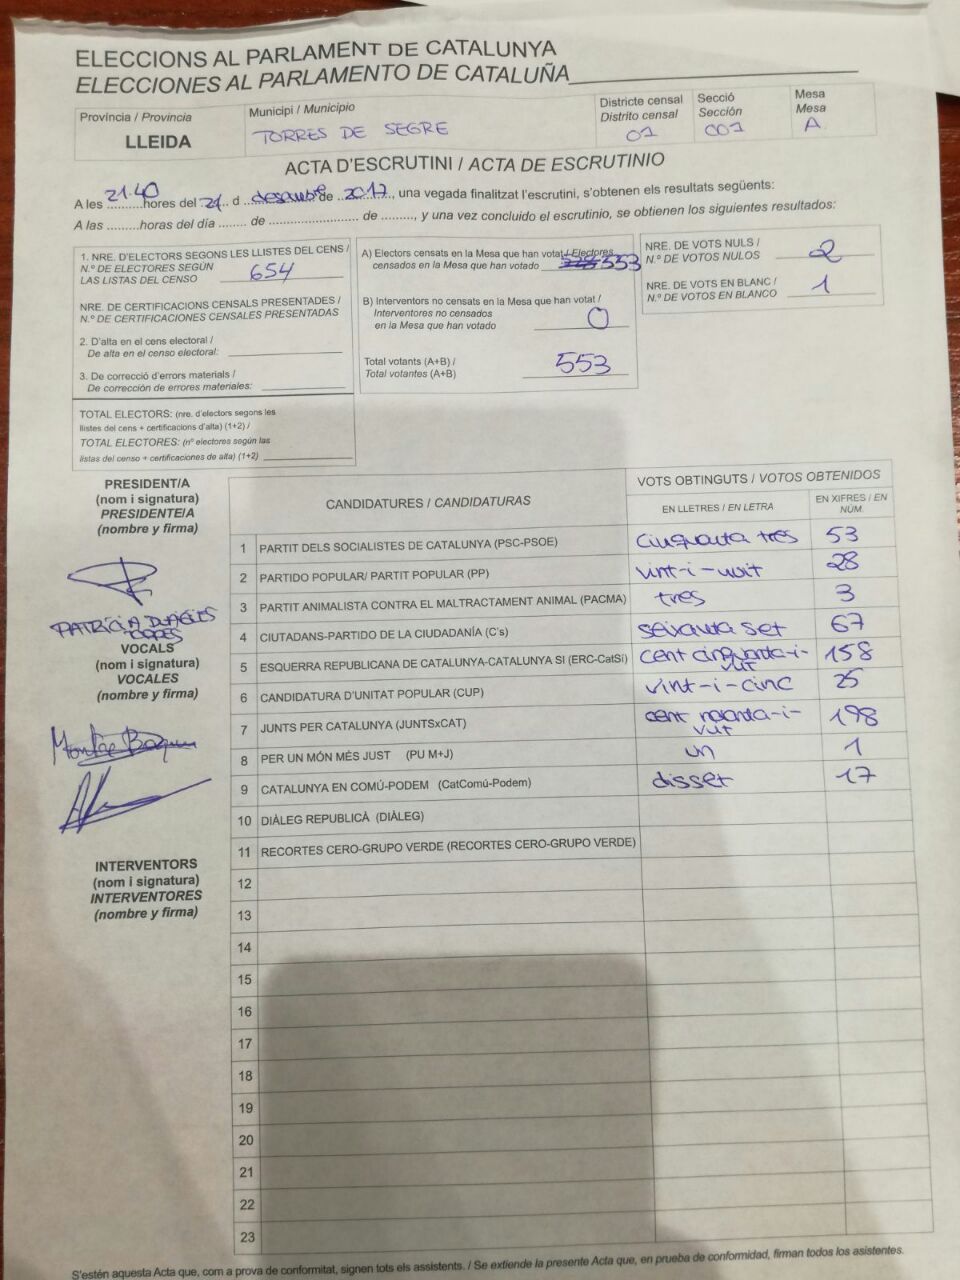 ELECCIONS AL PARLAMENT DE CATALUNYA
ELECCIONES AL PARLAMENTO DE CATALUÑA
Província / Provincia
LLEIDA
Municipi / Municipio
TORRES DE SEGRE
Districte censal
Distrito censal
01
Secció
Sección
001
Mesa
Mesa
A
ACTA D'ESCRUTINI / ACTA DE ESCRUTINIO
A les 21.40 hores del 21 d desembre de 2017, una vegada finalitzat l'escrutini, s'obtenen els resultats següents:
A las .........horas del día ........ de ......................... de ........., y una vez concluido el escrutinio, se obtienen los siguientes resultados:
1. NRE. D'ELECTORS SEGONS LES LLISTES DEL CENS /
N.º DE ELECTORES SEGÚN
LAS LISTAS DEL CENSO 654
NRE. DE CERTIFICACIONS CENSALS PRESENTADES /
N.º DE CERTIFICACIONES CENSALES PRESENTADAS
2. D'alta en el cens electoral /
De alta en el censo electoral:
3. De correcció d'errors materials /
De corrección de errores materiales:
TOTAL ELECTORS: (nre. d'electors segons les
llistes del cens + certificacions d'alta) (1+2) /
TOTAL ELECTORES: (nº electores según las
listas del censo + certificaciones de alta) (1+2)
A) Electors censats en la Mesa que han votat / Electores
censados en la Mesa que han votado 553
B) Interventors no censats en la Mesa que han votat /
Interventores no censados
en la Mesa que han votado 0
Total votants (A+B) /
Total votantes (A+B) 553
NRE. DE VOTS NULS /
N.º DE VOTOS NULOS 2
NRE. DE VOTS EN BLANC /
N.º DE VOTOS EN BLANCO 1
PRESIDENT/A
(nom i signatura)
PRESIDENTE/A
(nombre y firma)
PATRÍCIA
TORRES
VOCALS
(nom i signatura)
VOCALES
(nombre y firma)
Montse
INTERVENTORS
(nom i signatura)
INTERVENTORES
(nombre y firma)
CANDIDATURES / CANDIDATURAS
VOTS OBTINGUTS / VOTOS OBTENIDOS
EN LLETRES / EN LETRA
EN XIFRES / EN NÚM.
1 PARTIT DELS SOCIALISTES DE CATALUNYA (PSC-PSOE) cinquanta tres 53
2 PARTIDO POPULAR/ PARTIT POPULAR (PP) vint-i-vuit 28
3 PARTIT ANIMALISTA CONTRA EL MALTRACTAMENT ANIMAL (PACMA) tres 3
4 CIUTADANS-PARTIDO DE LA CIUDADANÍA (C's) seixanta set 67
5 ESQUERRA REPUBLICANA DE CATALUNYA-CATALUNYA SI (ERC-CatSí) cent cinquanta-i-vuit 158
6 CANDIDATURA D'UNITAT POPULAR (CUP) vint-i-cinc 25
7 JUNTS PER CATALUNYA (JUNTSxCAT) cent noanta-i-vuit 198
8 PER UN MÓN MÉS JUST (PU M+J) un 1
9 CATALUNYA EN COMÚ-PODEM (CatComú-Podem) disset 17
10 DIÀLEG REPUBLICÀ (DIÀLEG)
11 RECORTES CERO-GRUPO VERDE (RECORTES CERO-GRUPO VERDE)
12
13
14
15
16
17
18
19
20
21
22
23
S'estén aquesta Acta que, com a prova de conformitat, signen tots els assistents. / Se extiende la presente Acta que, en prueba de conformidad, firman todos los asistentes.